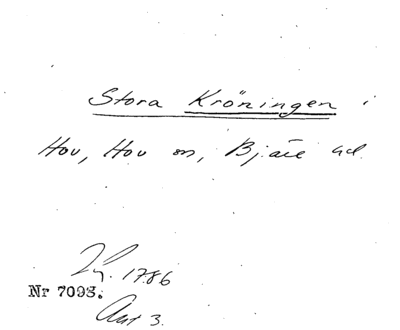 Stora Kröningen i
Hov, Hov sn, Bjäre hd.
1786
Nr 7093.
Ant 3.